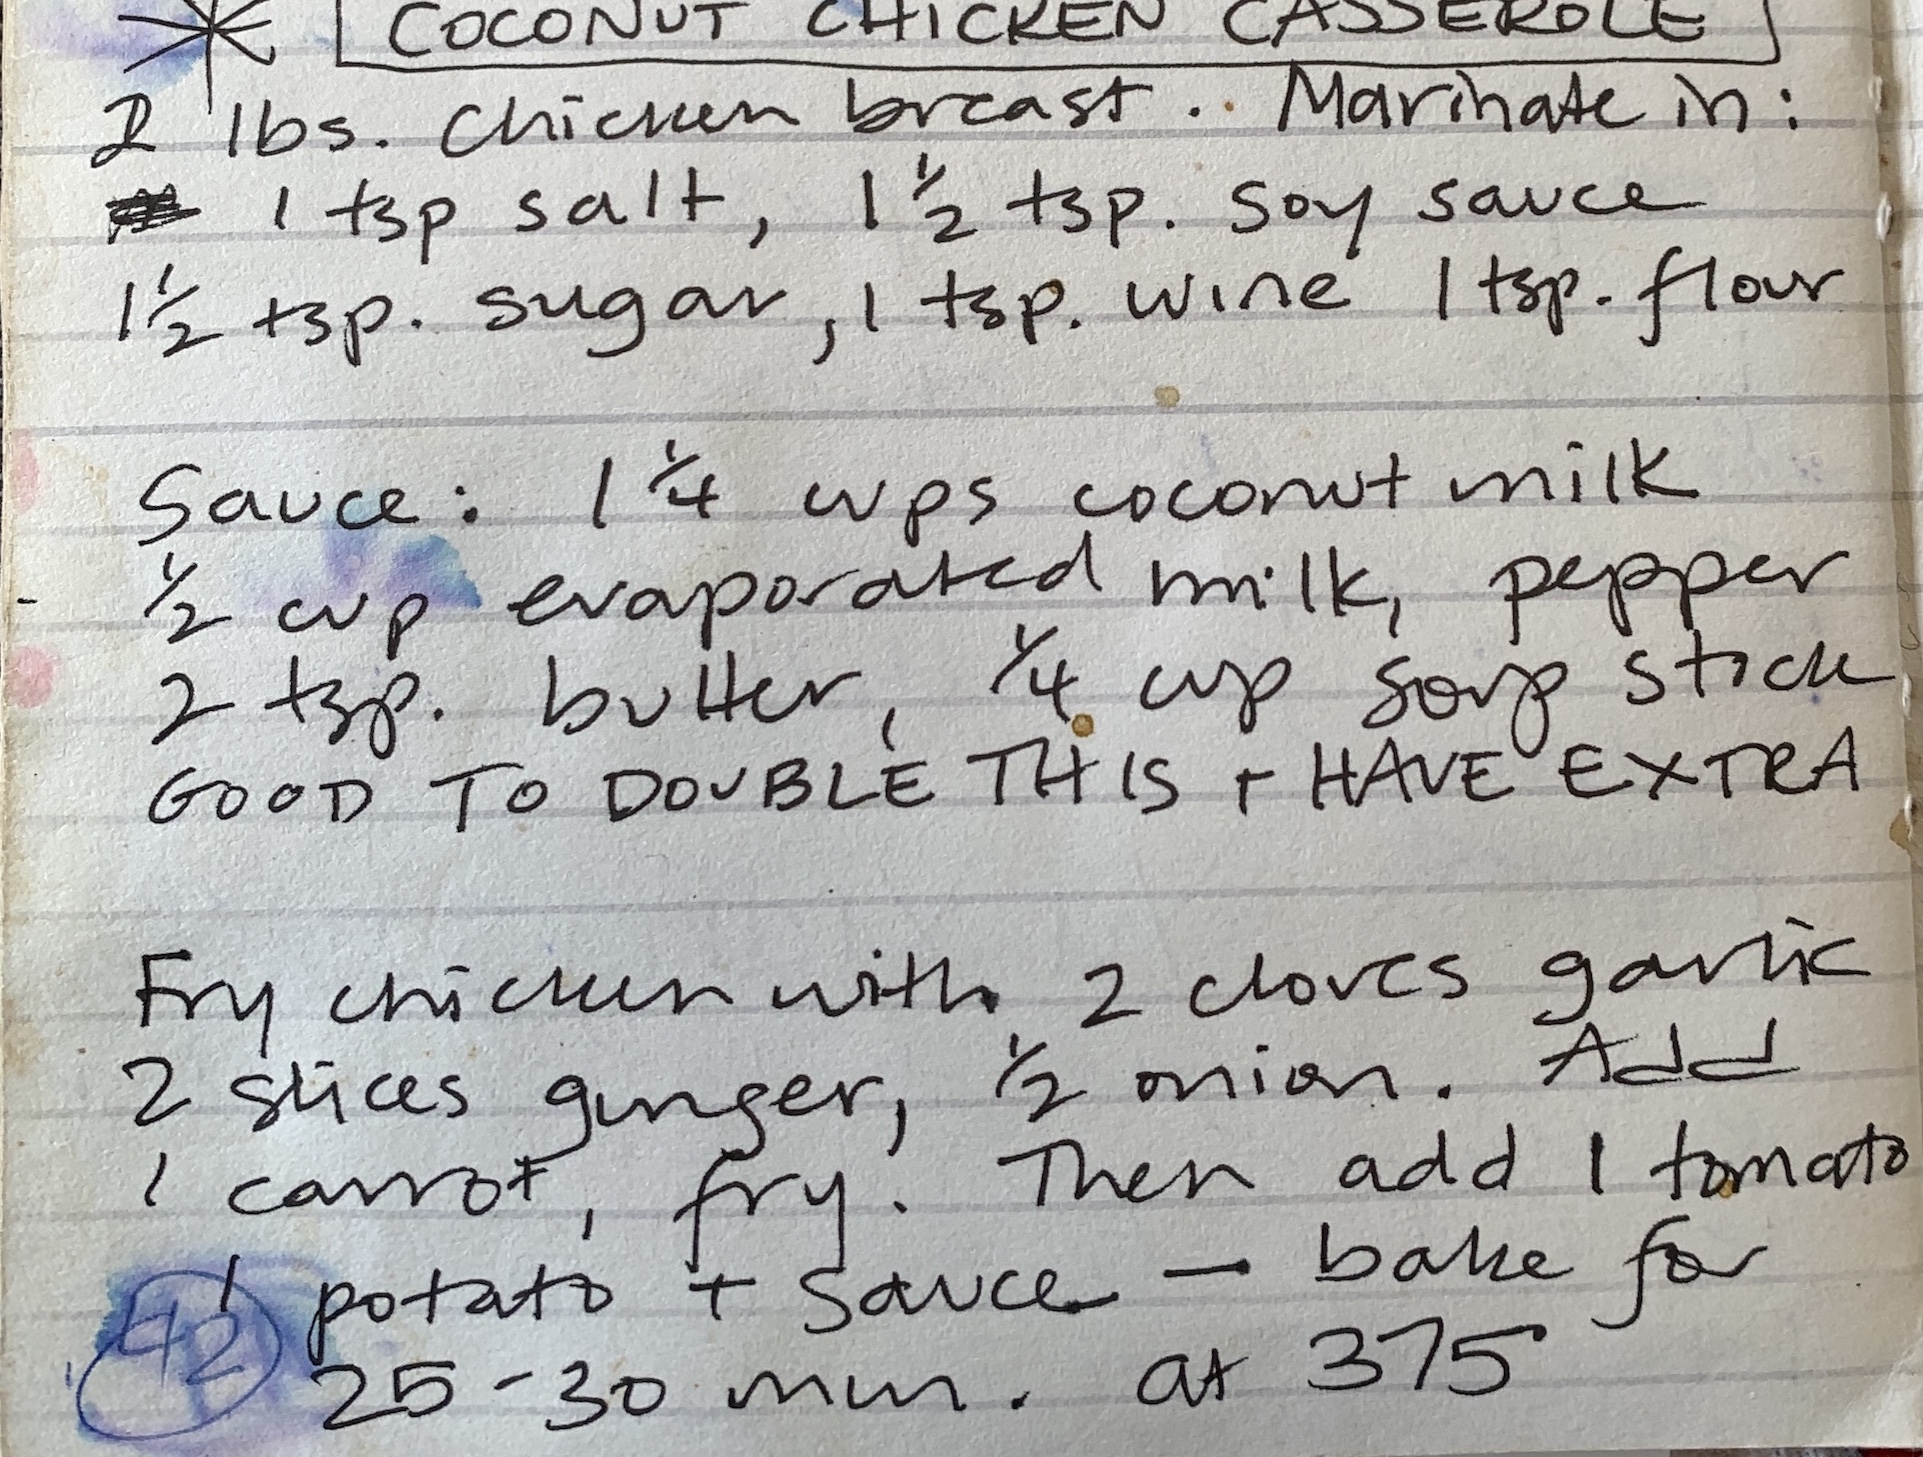 COCONUT CHICKEN CASSEROLE
2 lbs. Chicken breast. Marinate in:
1 tsp salt, 1 1/2 tsp. soy sauce
1 1/2 tsp. sugar, 1 tsp. wine 1 tsp. flour
Sauce: 1 1/4 cups coconut milk
1/2 cup evaporated milk, pepper
2 tsp. butter, 1/4 cup soup stock
GOOD TO DOUBLE THIS + HAVE EXTRA
Fry chicken with 2 cloves garlic
2 slices ginger, 1/2 onion. Add
1 carrot, fry. Then add 1 tomato
1 potato + sauce — bake for
25-30 min. at 375
42